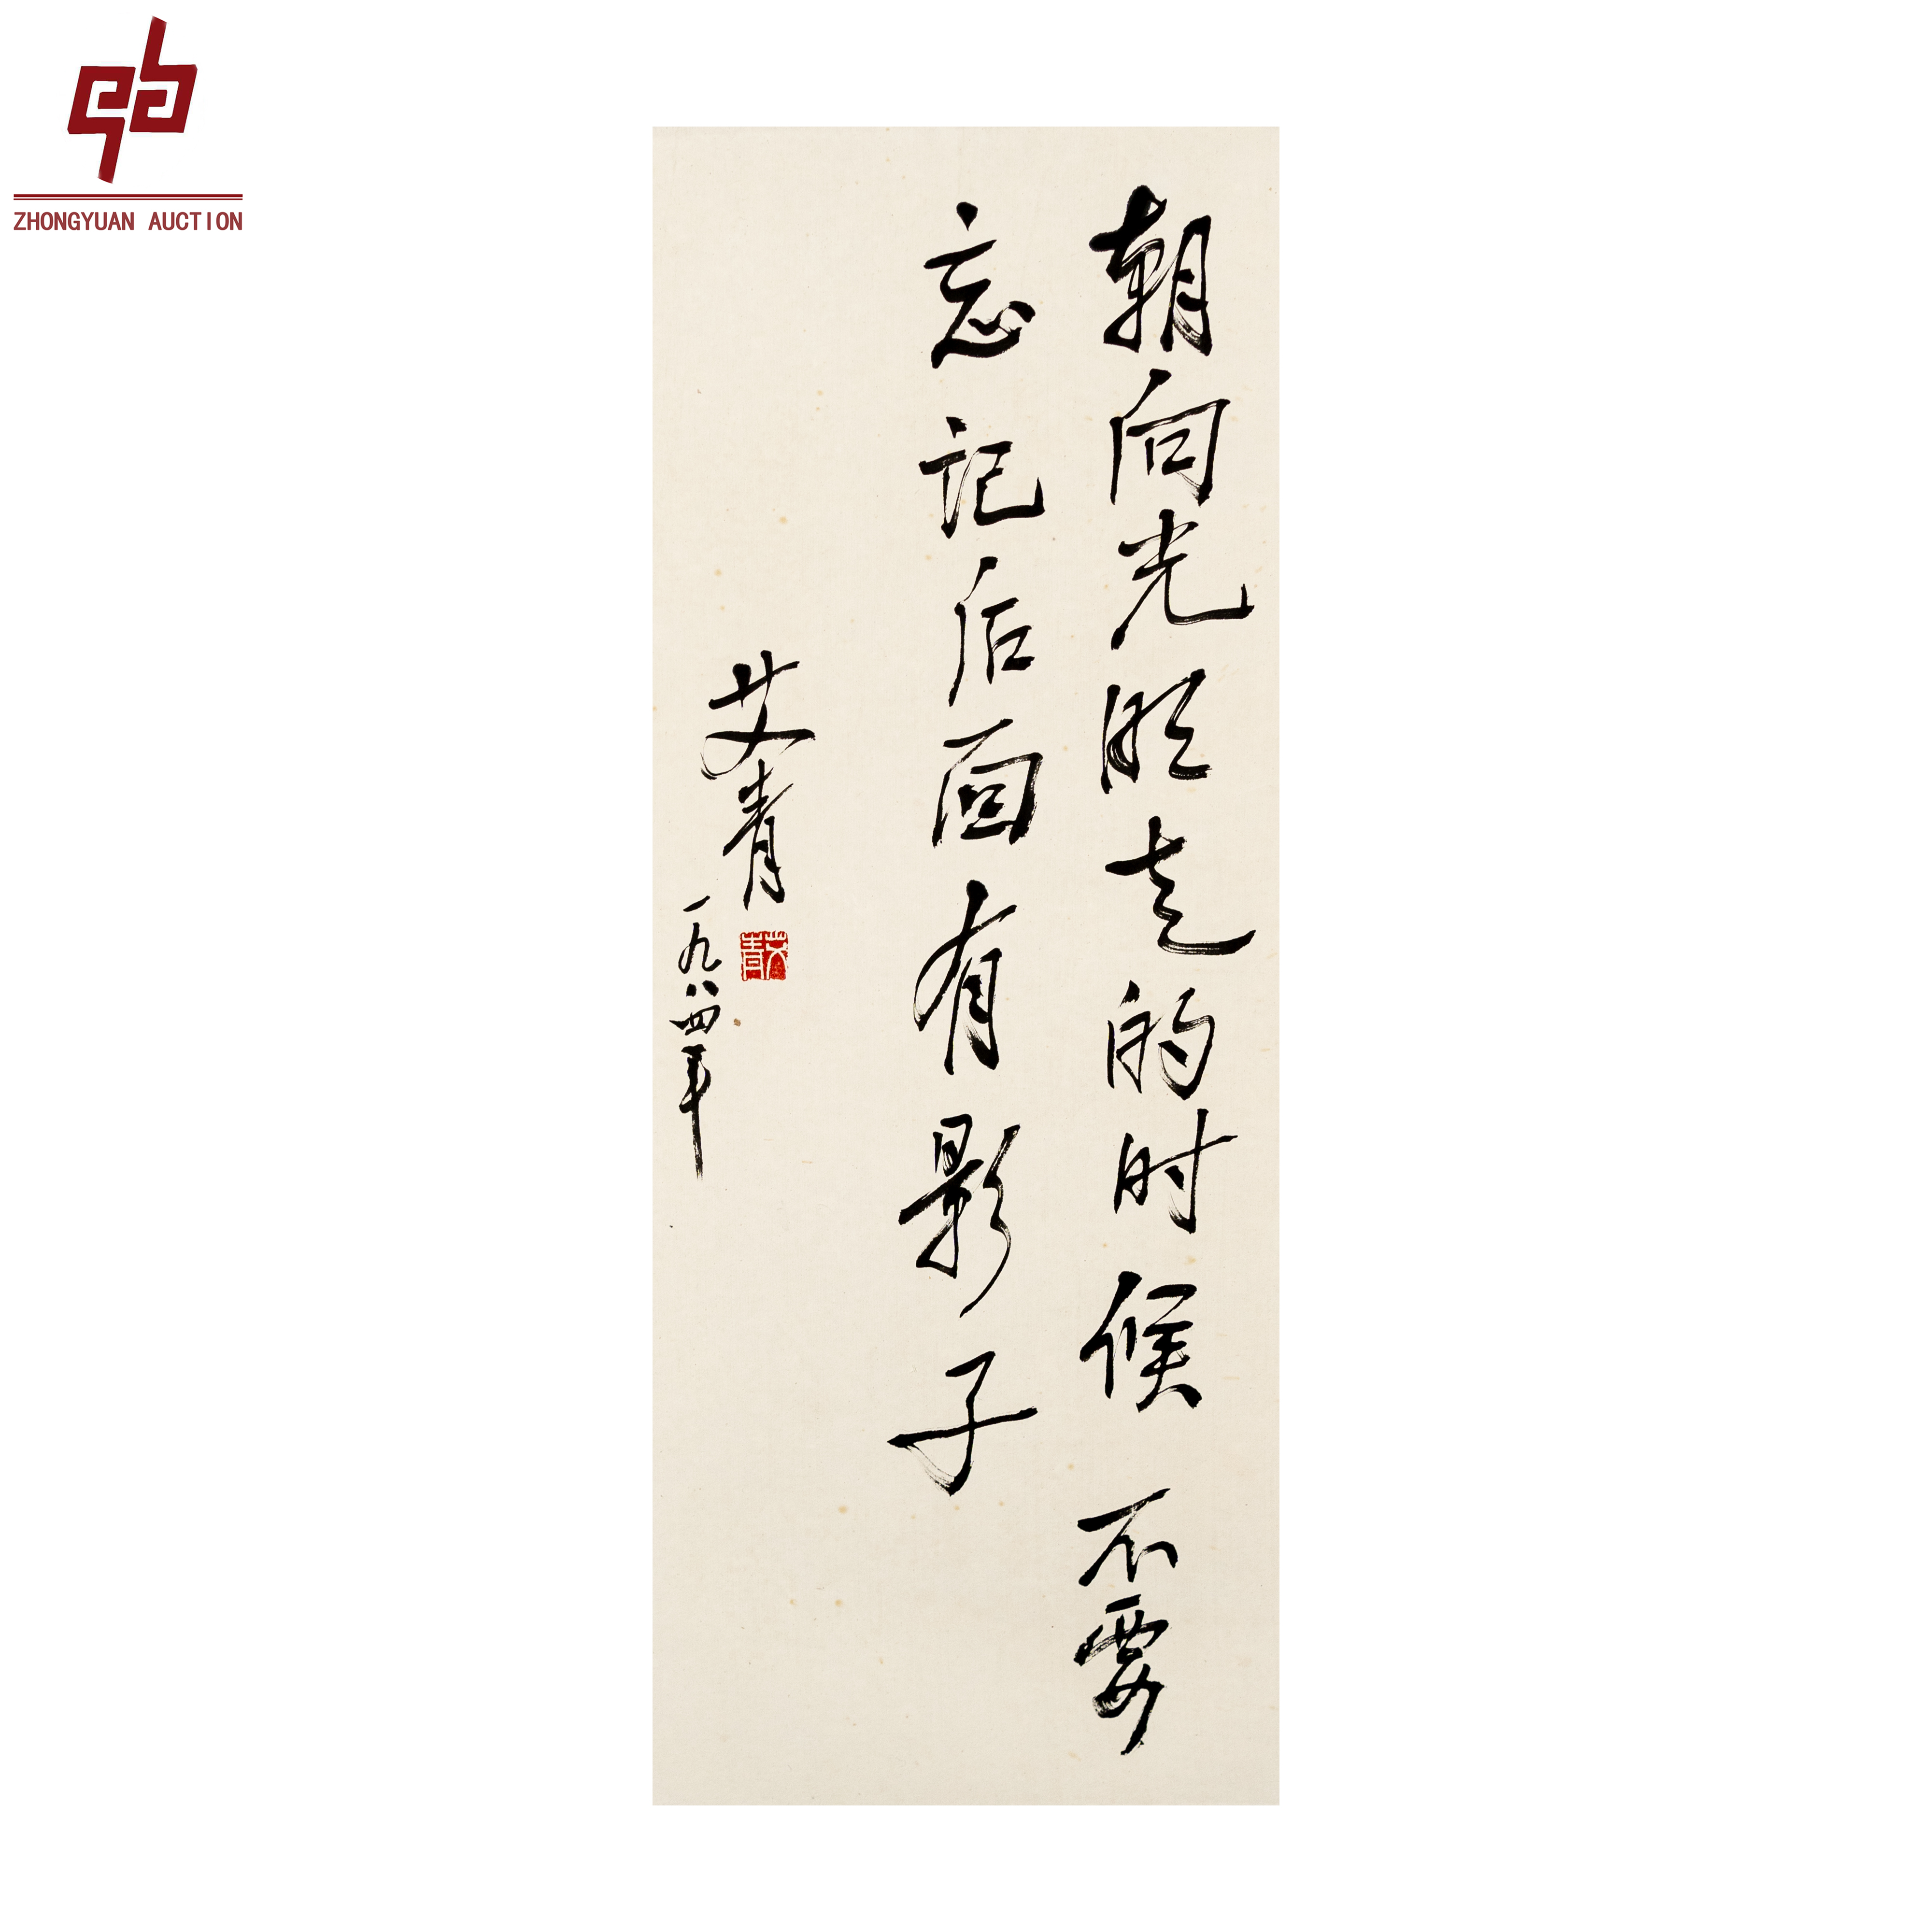 ZHONGYUAN AUCTION
朝向光明走的时候不要
忘记后面有影子
艾青
一九八四年
艾青